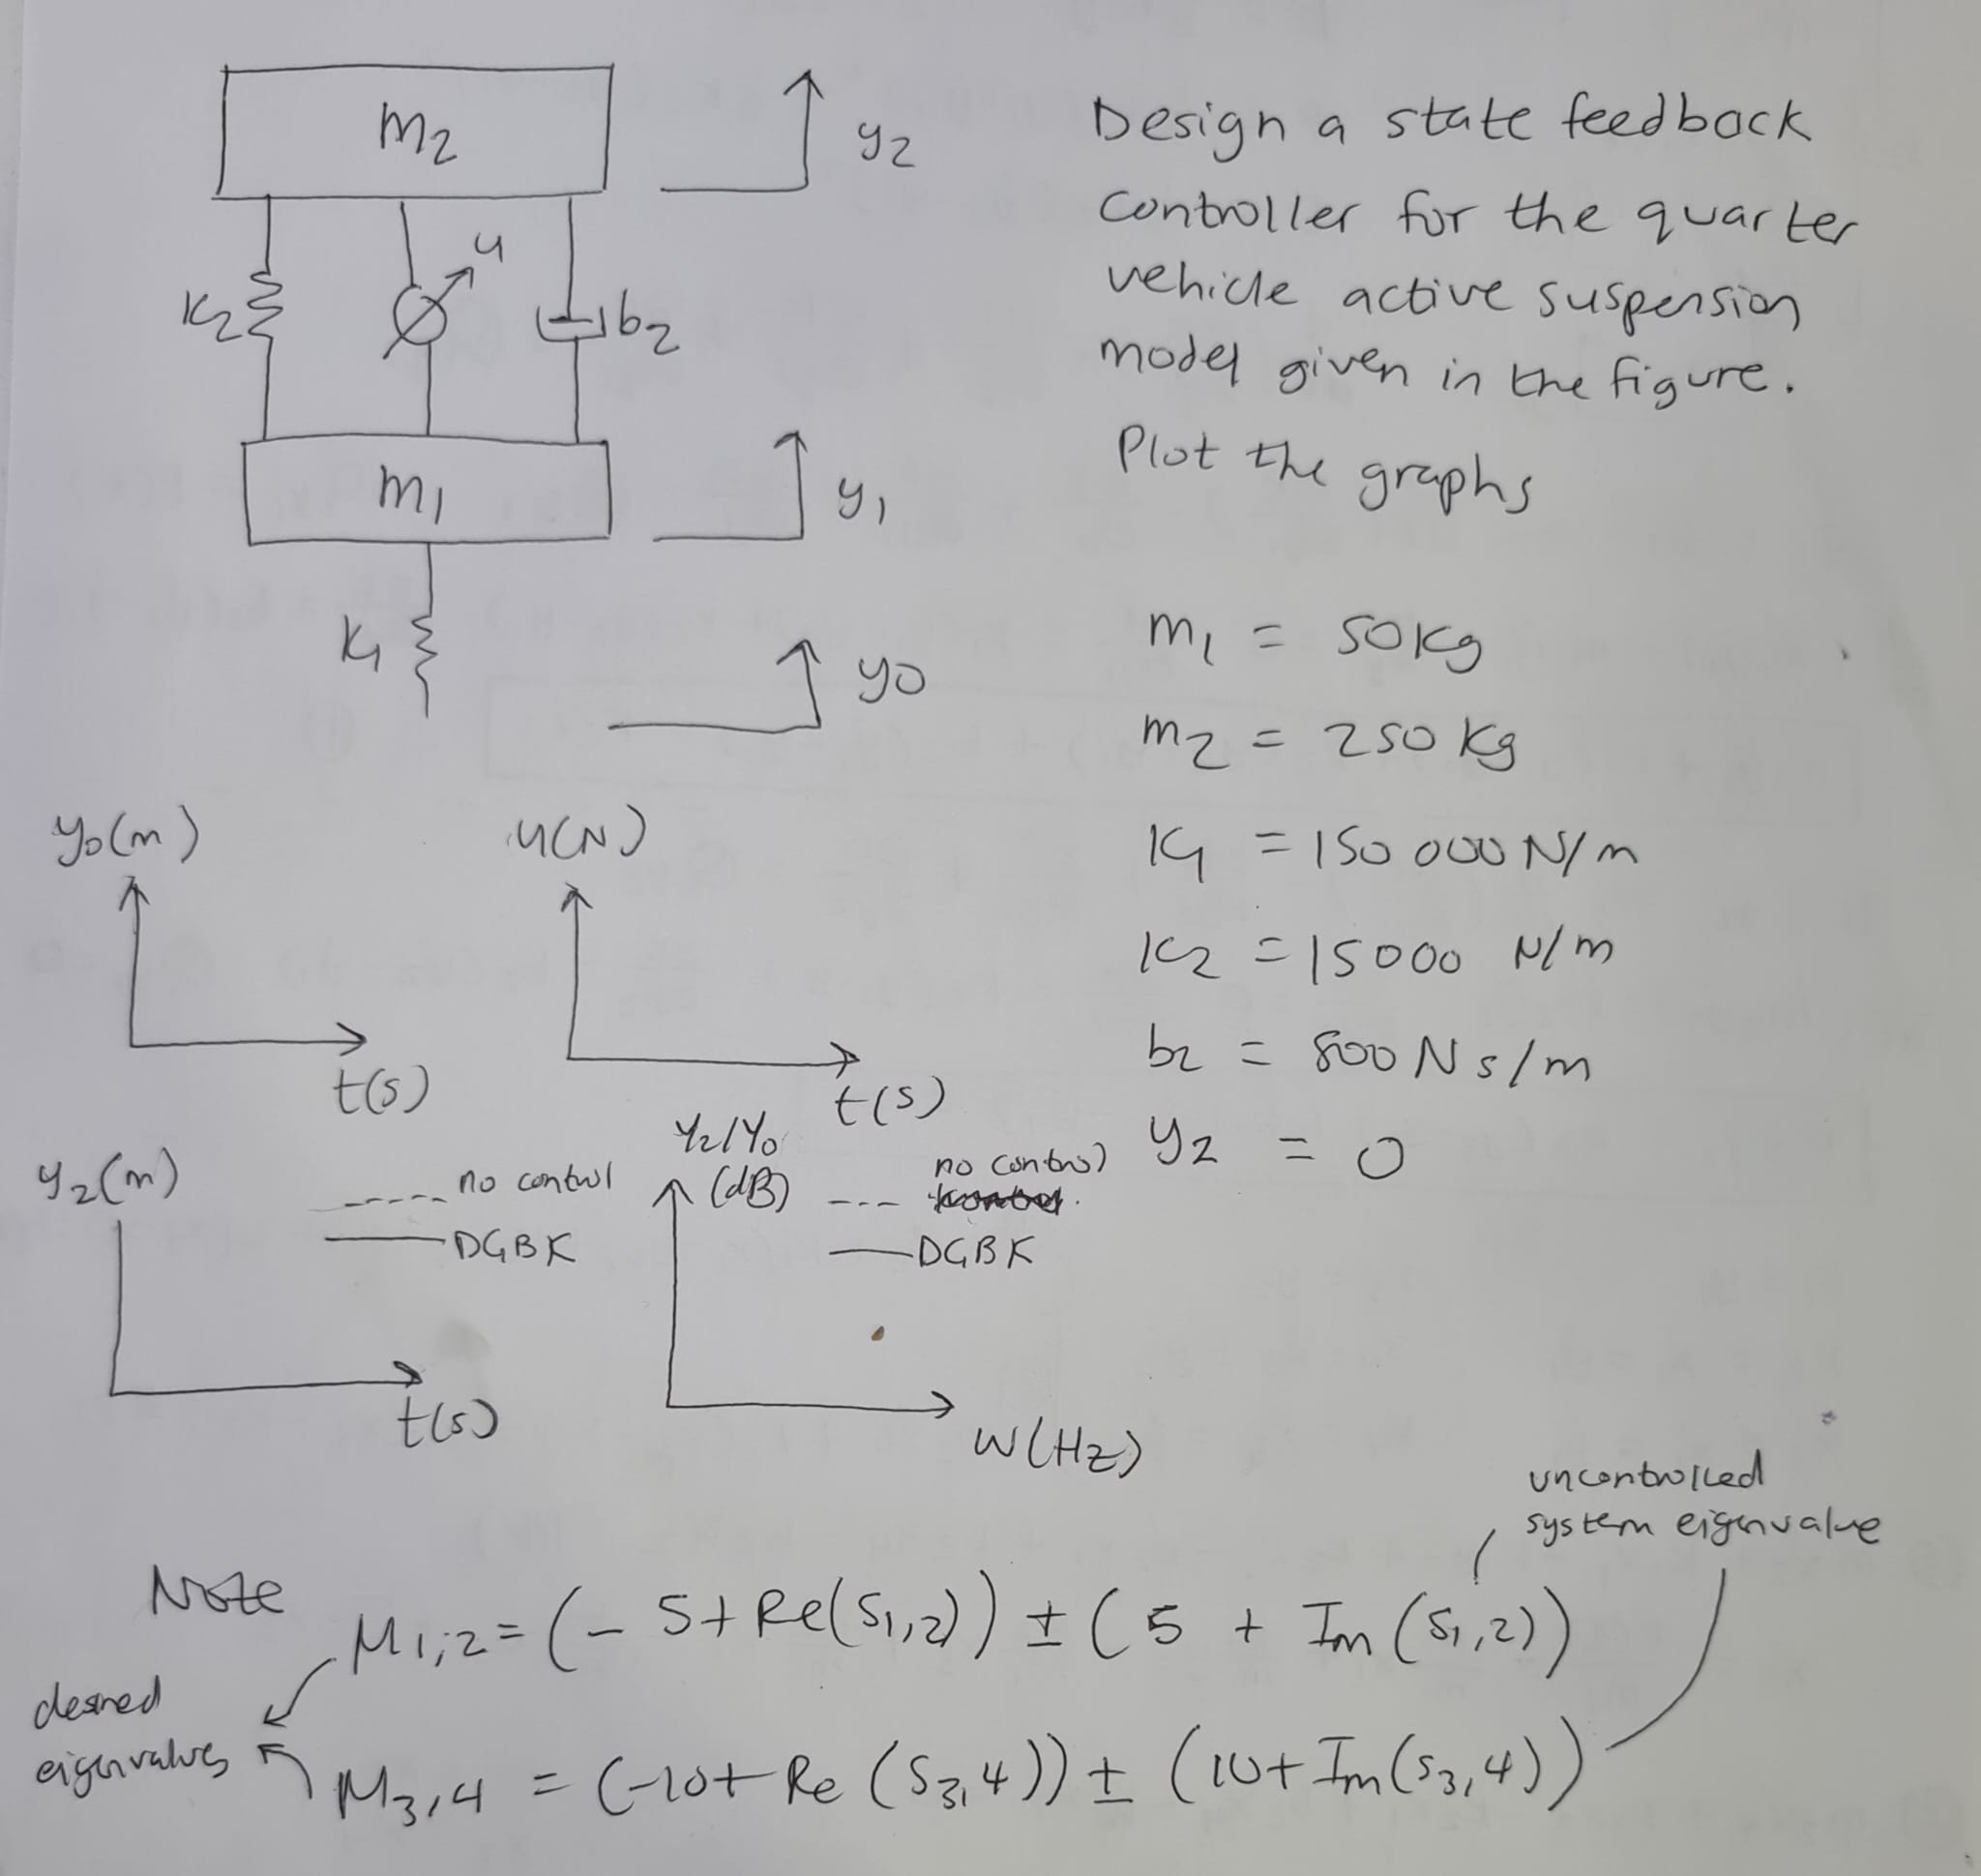 m2
y2
K2
u
b2
m1
y1
K1
y0
Design a state feedback
controller for the quarter
vehicle active suspension
model given in the figure.
Plot the graphs
m1 = 50kg
m2 = 250 kg
K1 = 150 000 N/m
K2 = 15000 N/m
b2 = 800 N s/m
y2 = 0
y0(m)
t(s)
u(N)
t(s)
y2(m)
---- no control
—— DGBK
t(s)
Y2/Y0
(dB)
--- no control
—— DGBK
W(Hz)
uncontrolled
system eigenvalue
Note
M1,2 = (- 5+ Re(S1,2)) ± (5 + Im(S1,2))
desired
eigenvalues
M3,4 = (-10+ Re(S3,4)) ± (10+ Im(S3,4))